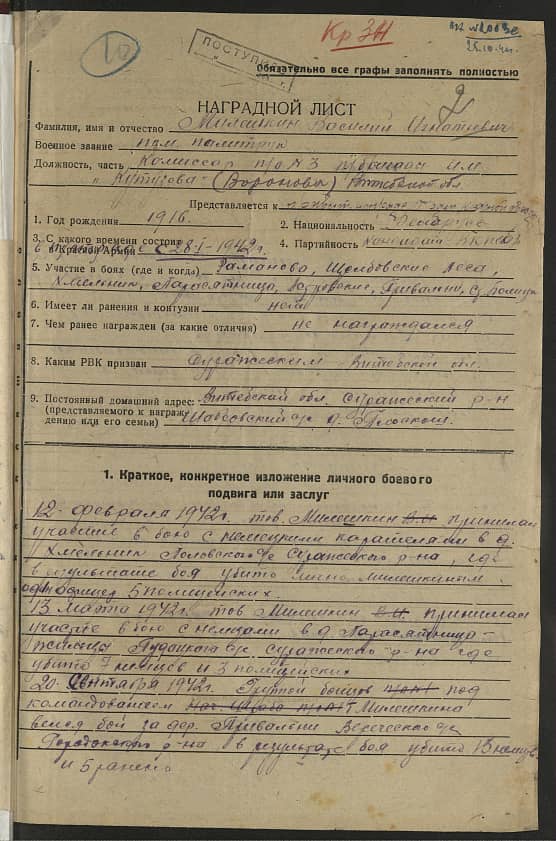 10
Кр ЗН
25.10.44
ПОСТУПИЛ
обязательно все графы заполнять полностью
НАГРАДНОЙ ЛИСТ
Фамилия, имя и отчество Милешкин Василий Игнатьевич
Военное звание пом. политрук
Должность, часть Комиссар п/о № 3 п/бригады им.
"Кутузова" (Воронова) Витебской обл.
Представляется к
1. Год рождения 1916. 2. Национальность беларус
3. С какого времени состоит
в Красной Армии с 28-I-1942 г. 4. Партийность кандидат ВКП(б)
5. Участие в боях (где и когда) Раманово, Щелбовские леса,
Хмельник, Тарасятница, Островские, Привални,
6. Имеет ли ранения и контузии нет
7. Чем ранее награжден (за какие отличия) не награждался
8. Каким РВК призван Суражским Витебской обл.
9. Постоянный домашний адрес: Витебская обл. Суражский р-н
(представляемого к награж-
дению или его семьи) с/с д.
1. Краткое, конкретное изложение личного боевого
подвига или заслуг
12 февраля 1942 г. тов. Милешкин В.И. принимал
участие в бою с немецкими карателями в д.
Хмельник с/с Суражского р-на, где
в результате боя убито лично Милешкиным
один офицер 5 полицейских.
13 марта 1942 г. тов Милешкин В.И. принимал
участие в бою с немцами в д. Тарасятница-
Пудацкого с/с Суражского р-на где
убито 7 немцов и 3 полицейских
20 Сентября 1942 г. Группой бойцов п/о № 1 под
командованием Нач. Штаба п/о № 1 Милешкина
велся бой за дер. Привални Веречского с/с
Городокского р-на в результате боя убито 13 немцов
и 5 ранено